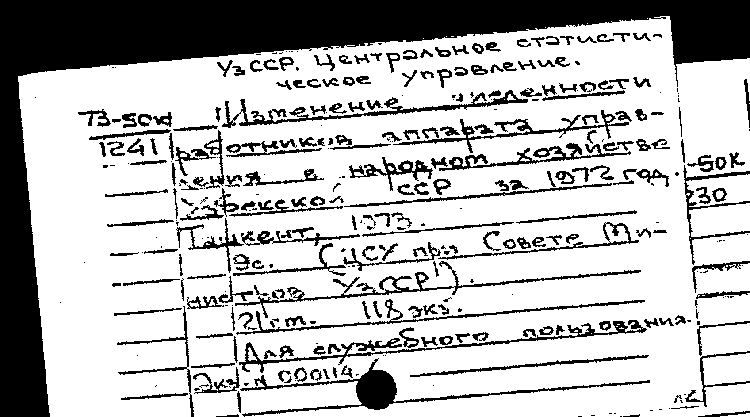 УзССР. Центральное статисти-
ческое управление.
73-50к Изменение численности
1241 работников аппарата управ-
ления в народном хозяйстве
Узбекской ССР за 1972 год.
Ташкент, 1973.
9с. (ЦСУ при Совете Ми-
нистров УзССР).
21 cm. 118 экз.
Для служебного пользования.
Экз. N 000114
-50К
230